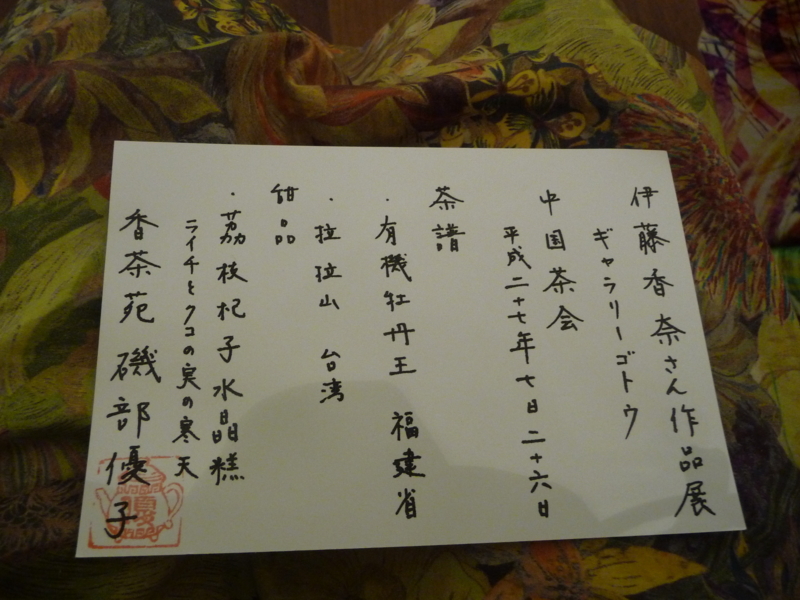 伊藤香奈さん作品展
ギャラリーゴトウ
中国茶会
平成二十七年七日二十六日
茶譜
・有機牡丹王 福建省
・拉拉山 台湾
甜品
・茘枝杞子水晶糕
ライチとクコの実の寒天
香茶苑 磯部優子